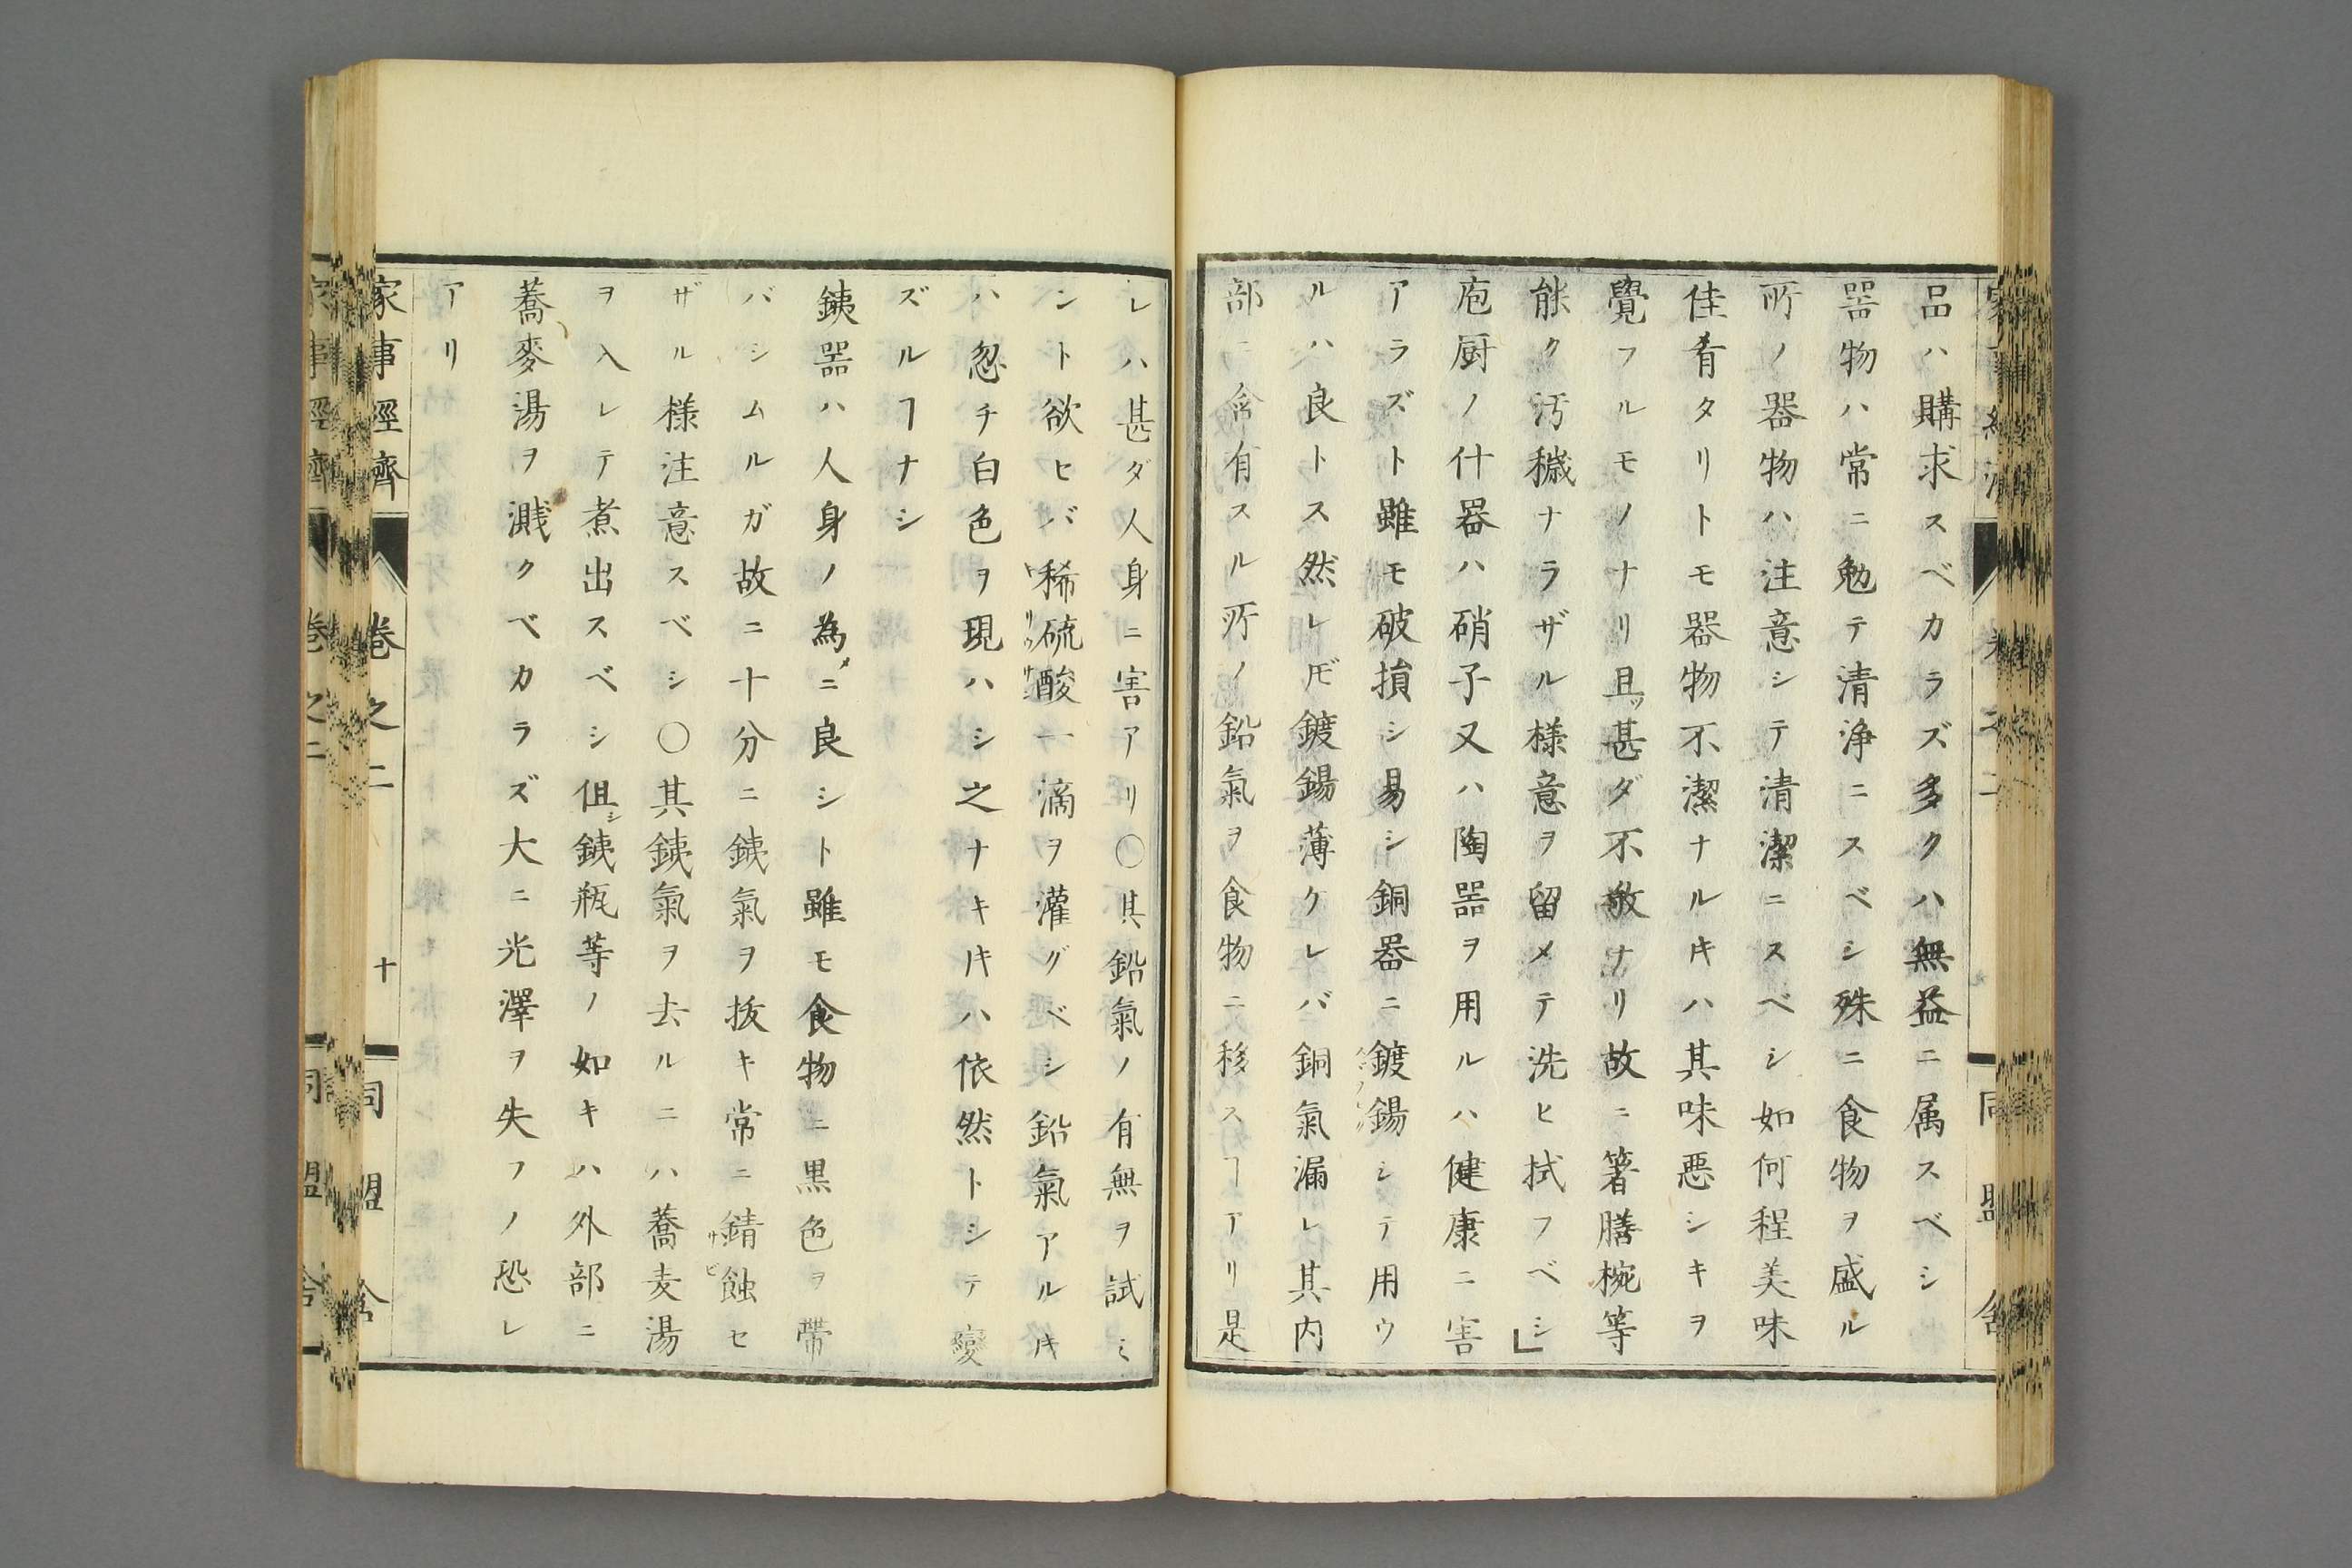 品ハ購求スベカラズ多クハ無益ニ属スベシ
器物ハ常ニ勉テ清浄ニスベシ殊ニ食物ヲ盛ル
所ノ器物ハ注意シテ清潔ニスベシ如何程美味
佳肴タリトモ器物不潔ナルキハ其味悪シキヲ
覺フルモノナリ且ツ甚ダ不敬ナリ故ニ箸膳椀等
能ク汚穢ナラザル様意ヲ留メテ洗ヒ拭フベシ」
庖厨ノ什器ハ硝子又ハ陶器ヲ用ルハ健康ニ害
アラズト雖モ破損シ易シ銅器ニ鍍錫シテ用ウ
ルハ良トス然レ𪜈鍍錫薄クレバ銅氣漏レ其内
部ニ含有スル所ノ鉛氣ヲ食物ニ移スヿアリ是
レハ甚ダ人身ニ害アリ〇其鉛氣ノ有無ヲ試ミ
ント欲ヒバ稀硫酸一滴ヲ灌グベシ鉛氣アルキ
ハ忽チ白色ヲ現ハシ之ナキキハ依然トシテ變
ズルヿナシ
銕器ハ人身ノ為メニ良シト雖モ食物ニ黒色ヲ帶
バシムルガ故ニ十分ニ銕氣ヲ抜キ常ニ錆蝕セ
サビ
ザル様注意スベシ〇其銕氣ヲ去ルニハ蕎麦湯
ヲ入レテ煮出スベシ但シ銕瓶等ノ如キハ外部ニ
蕎麥湯ヲ濺クベカラズ大ニ光澤ヲ失フノ恐レ
アリ
家事經濟 巻之二 十 同盟舎